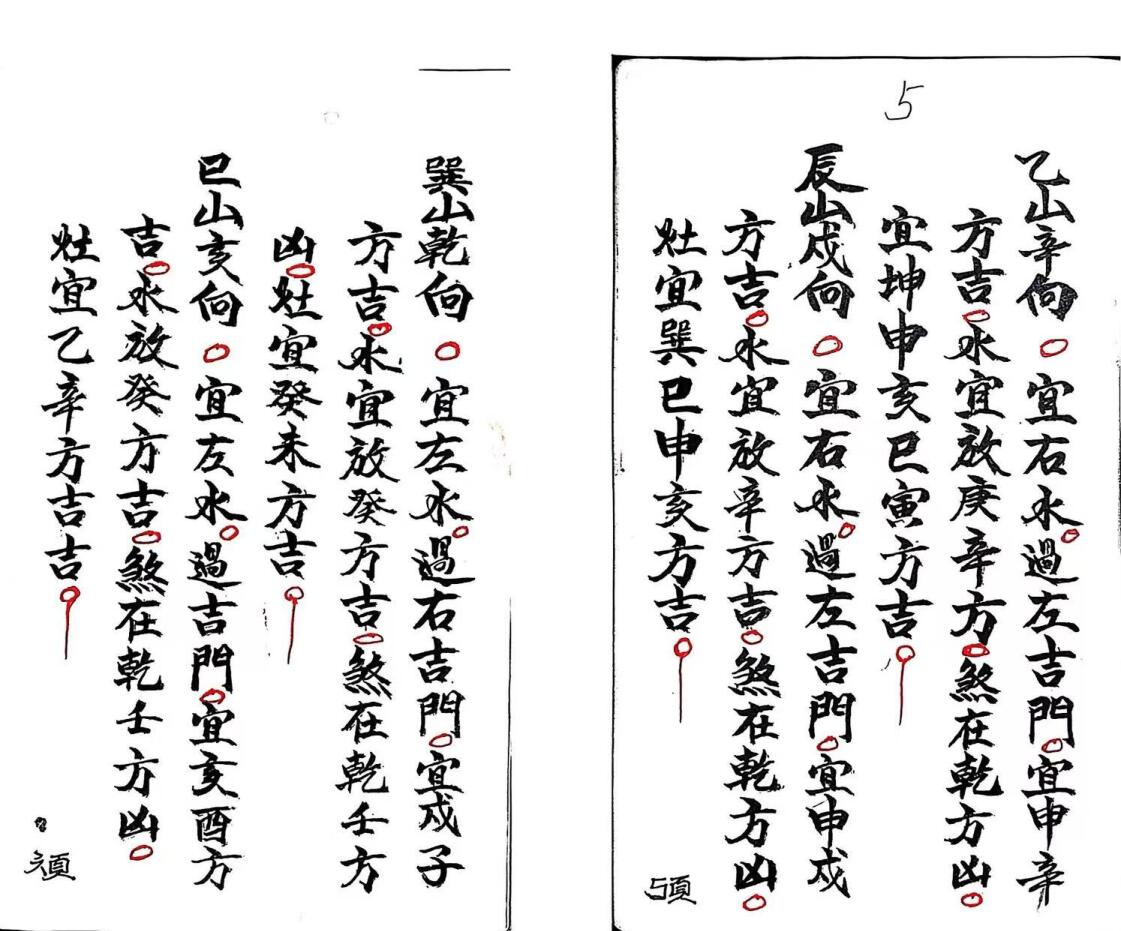 5
乙山辛向○宜右水。過左吉門。宜申辛
方吉。水宜放庚辛方。煞在乾方凶。
宜坤申亥巳寅方吉。
辰山戌向○宜右水。過左吉門。宜申戌
方吉。水宜放辛方吉。煞在乾方凶。
灶宜巽巳申亥方吉。
5頭
巽山乾向○宜左水。過右吉門。宜戌子
方吉。水宜放癸方吉。煞在乾壬方
凶。灶宜癸未方吉。
巳山亥向○宜左水。過吉門。宜亥酉方
吉。水放癸方吉。煞在乾壬方凶。
灶宜乙辛方吉吉。